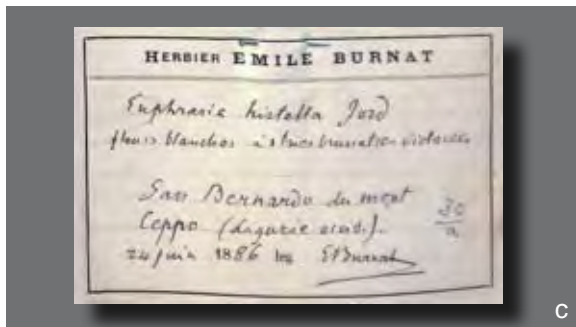 HERBIER EMILE BURNAT
Euphrasia hirtella Jord
fleurs blanches à stries violacées
San Bernardo du mont
Ceppo (Ligurie occid.).
30
a
24 juin 1886 leg EBurnat
C